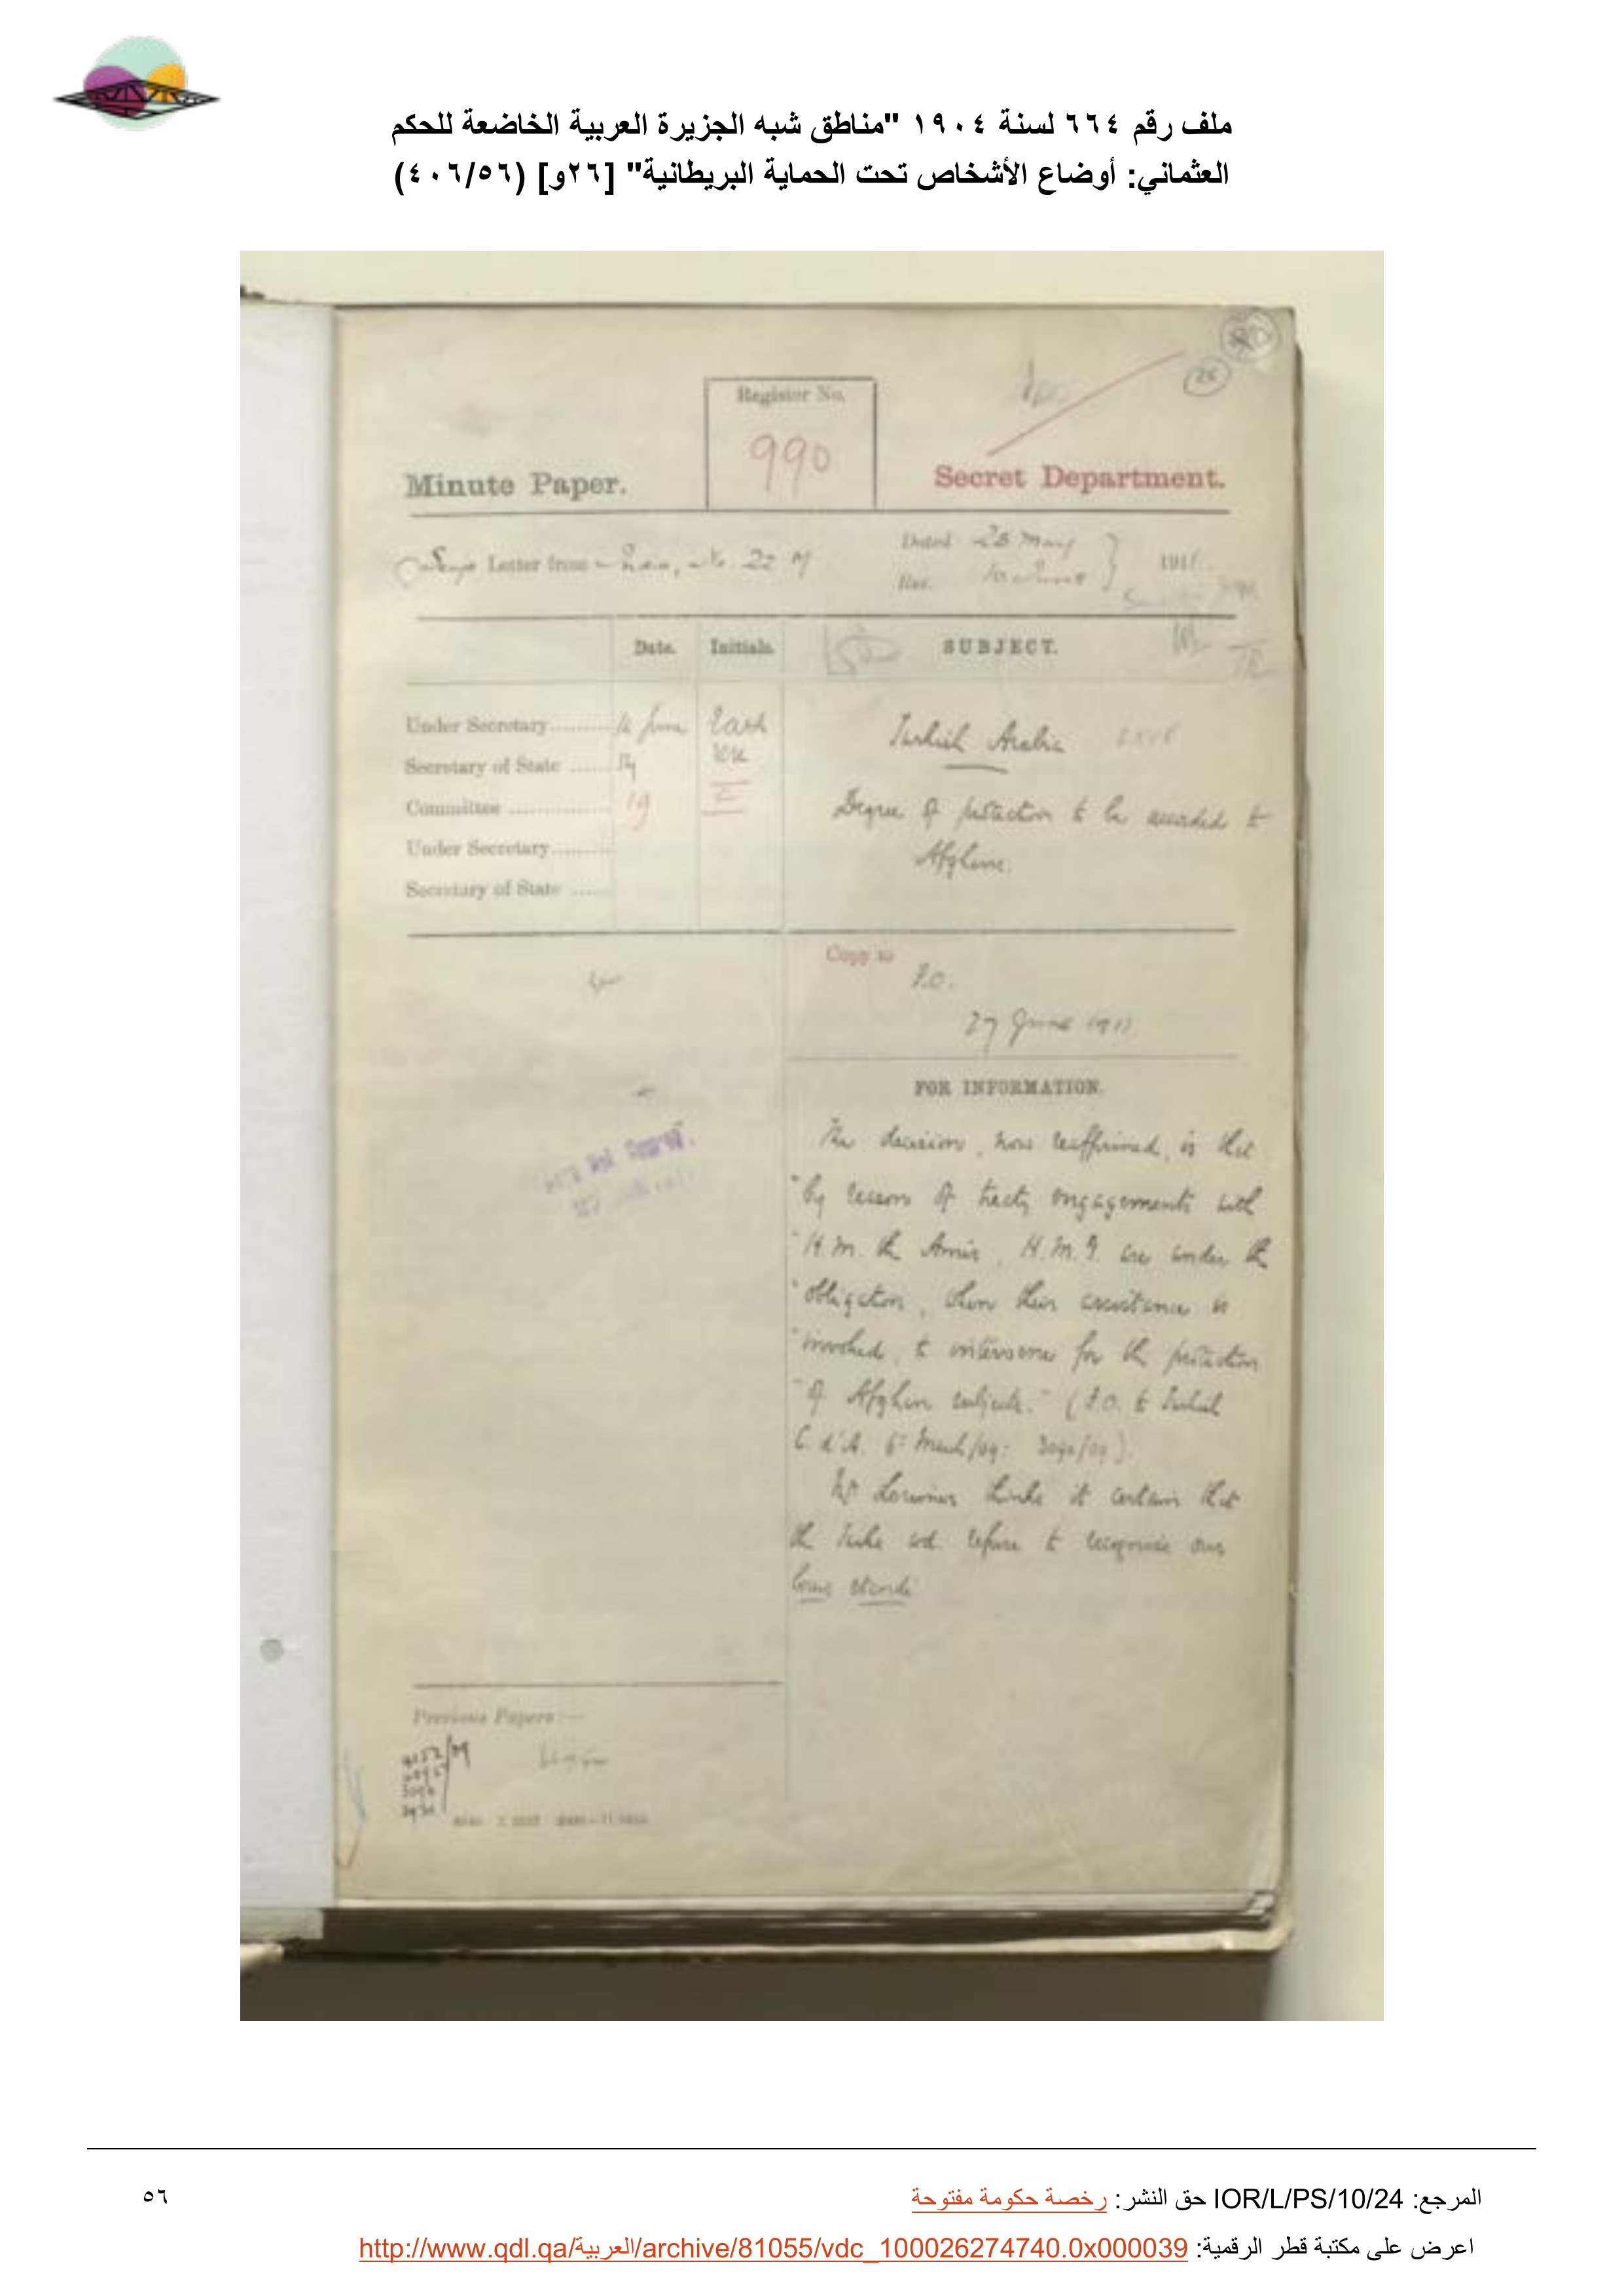 ملف رقم ٦٦٤ لسنة ١٩٠٤ "مناطق شبه الجزيرة العربية الخاضعة للحكم
العثماني: أوضاع الأشخاص تحت الحماية البريطانية" [٢٦و] (٤٠٦/٥٦)
26
Register No.
990
Minute Paper.
Secret Department.
Letter from
Dated 25 May
Rec. 10 June
1911.
Date.
Initials.
SUBJECT.
Under Secretary
Secretary of State
Committee
Under Secretary
Secretary of State
June
19
Turkish Arabia
Degree of protection to be accorded to
Afghans.
Copy to
F.O.
27 June 1911
FOR INFORMATION.
The decision, now reaffirmed, is that
"by reason of treaty engagements with
"H.M. the Amir, H.M.G. are under the
"obligation, when their assistance is
"invoked, to intervene for the protection
"of Afghan subjects." (F.O. to Turkish
C. d'A. 6th March/09: 3090/09).
Mr Lorimer thinks it certain that
the Turks wd. refuse to recognise our
locus standi
Previous Papers :—
المرجع: IOR/L/PS/10/24 حق النشر: رخصة حكومة مفتوحة
٥٦
اعرض على مكتبة قطر الرقمية: http://www.qdl.qa/العربية/archive/81055/vdc_100026274740.0x000039